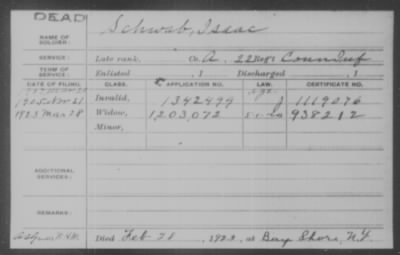 DEAD
NAME OF SOLDIER: Schwab, Isaac
SERVICE: Late rank, Co. A, 22 Reg't Conn Inf
TERM OF SERVICE: Enlisted , 1 Discharged , 1
DATE OF FILING. CLASS. APPLICATION NO. LAW. CERTIFICATE NO.
Invalid, 1342499 1119076
1923 Mar 28 Widow, 1,203,072 938212
Minor,
ADDITIONAL SERVICES:
REMARKS:
Died Feb 28, 1923, at Bay Shore, N.Y.